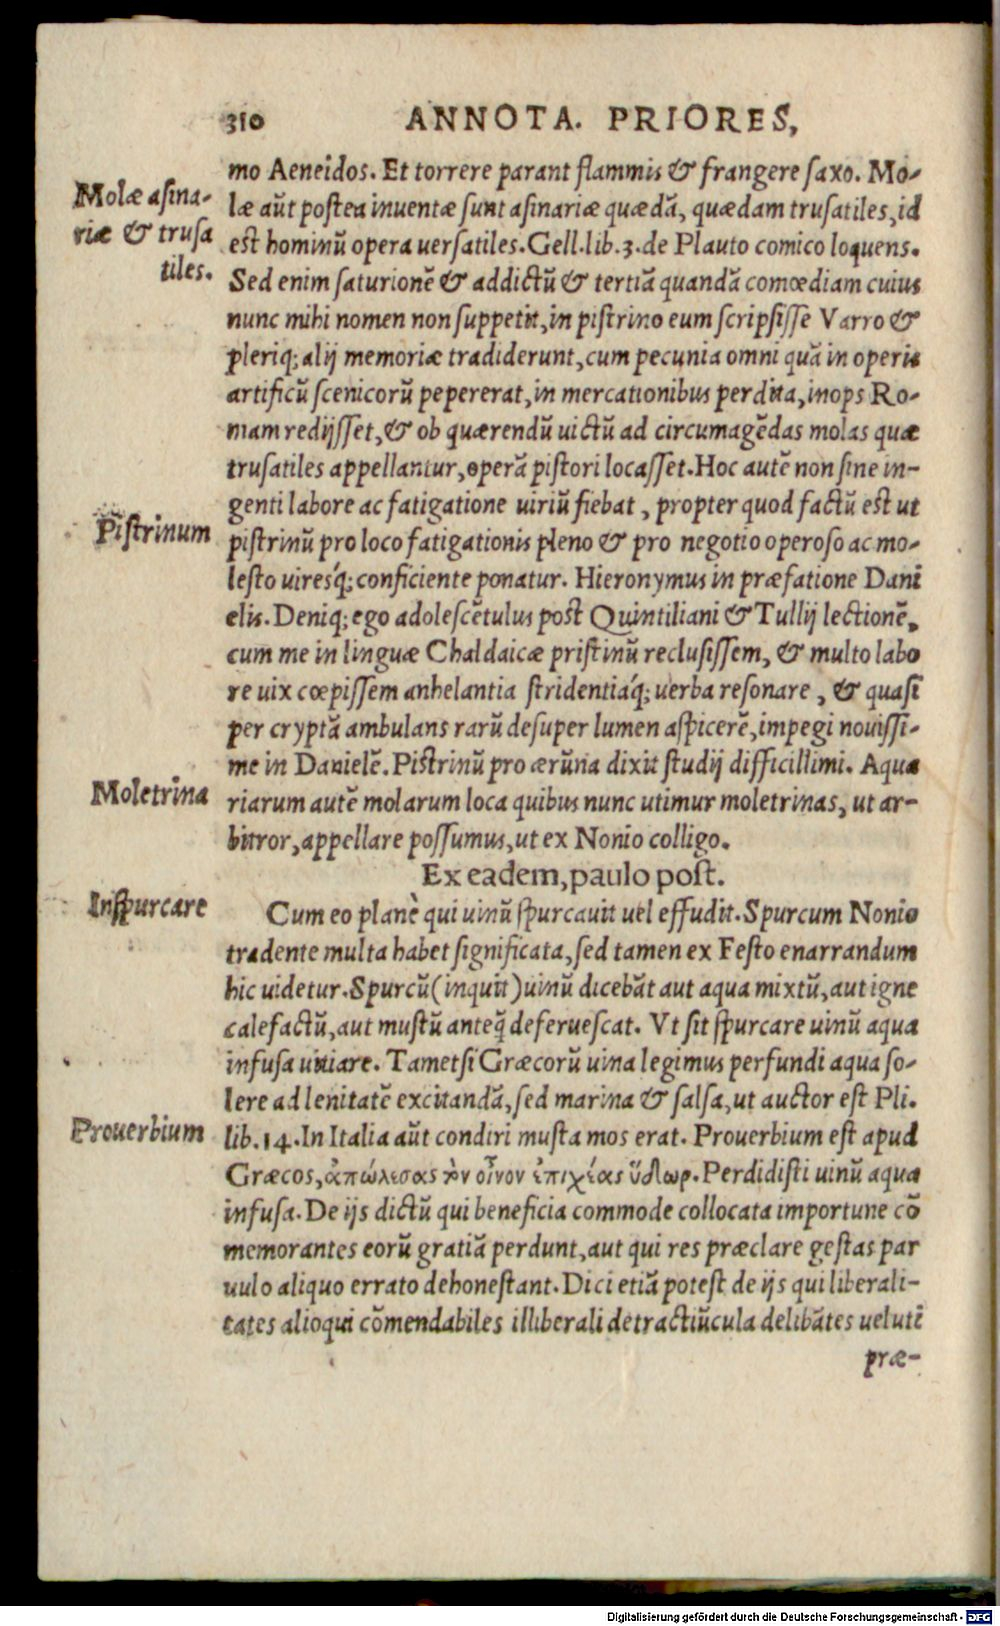 310 ANNOTA. PRIORES,
mo Aeneidos. Et torrere parant flammis & frangere saxo. Mo-
Molæ asina-
læ aūt postea inuentæ sunt asinariæ quædā, quædam trusatiles, id
riæ & trusa
est hominū opera uersatiles. Gell. lib. 3. de Plauto comico loquens.
tiles.
Sed enim saturionē & addictū & tertiā quandā comœdiam cuius
nunc mihi nomen non suppetit, in pistrino eum scripsisse Varro &
pleriq; alij memoriæ tradiderunt, cum pecunia omni quā in operis
artificū scenicorū pepererat, in mercationibus perdita, inops Ro-
mam redijsset, & ob quærendū uictū ad circumagēdas molas quæ
trusatiles appellantur, operā pistori locasset. Hoc autē non sine in-
genti labore ac fatigatione uiriū fiebat, propter quod factū est ut
Pistrinum
pistrinū pro loco fatigationis pleno & pro negotio operoso ac mo-
lesto uiresq́; conficiente ponatur. Hieronymus in præfatione Dani
elis. Deniq; ego adolescētulus post Quintiliani & Tullij lectionē,
cum me in linguæ Chaldaicæ pristinū reclusissem, & multo labo
re uix cœpissem anhelantia stridentiaq́; uerba resonare, & quasi
per cryptā ambulans rarū desuper lumen aspicerē, impegi nouissi-
me in Danielē. Pistrinū pro ærūna dixit studij difficillimi. Aqua
Moletrina
riarum autē molarum loca quibus nunc utimur moletrinas, ut ar-
bitror, appellare possumus, ut ex Nonio colligo.
Ex eadem, paulo post.
Inspurcare
Cum eo planè qui uinū spurcauit uel effudit. Spurcum Nonio
tradente multa habet significata, sed tamen ex Festo enarrandum
hic uidetur. Spurcū (inquit) uinū dicebāt aut aqua mixtū, aut igne
calefactū, aut mustū anteq̄ deferuescat. Vt sit spurcare uinū aqua
infusa uitiare. Tametsi Græcorū uina legimus perfundi aqua so-
lere ad lenitatē excitandā, sed marina & salsa, ut auctor est Pli.
Prouerbium
lib. 14. In Italia aūt condiri musta mos erat. Prouerbium est apud
Græcos, ἀπώλεσας τὸν οἶνον ἐπιχέας ὕδωρ. Perdidisti uinū aqua
infusa. De ijs dictū qui beneficia commode collocata importune cō
memorantes eorū gratiā perdunt, aut qui res præclare gestas par
uulo aliquo errato dehonestant. Dici etiā potest de ijs qui liberali-
tates alioqui cōmendabiles illiberali detractiūcula delibātes ueluti
præ-
Digitalisierung gefördert durch die Deutsche Forschungsgemeinschaft - DFG